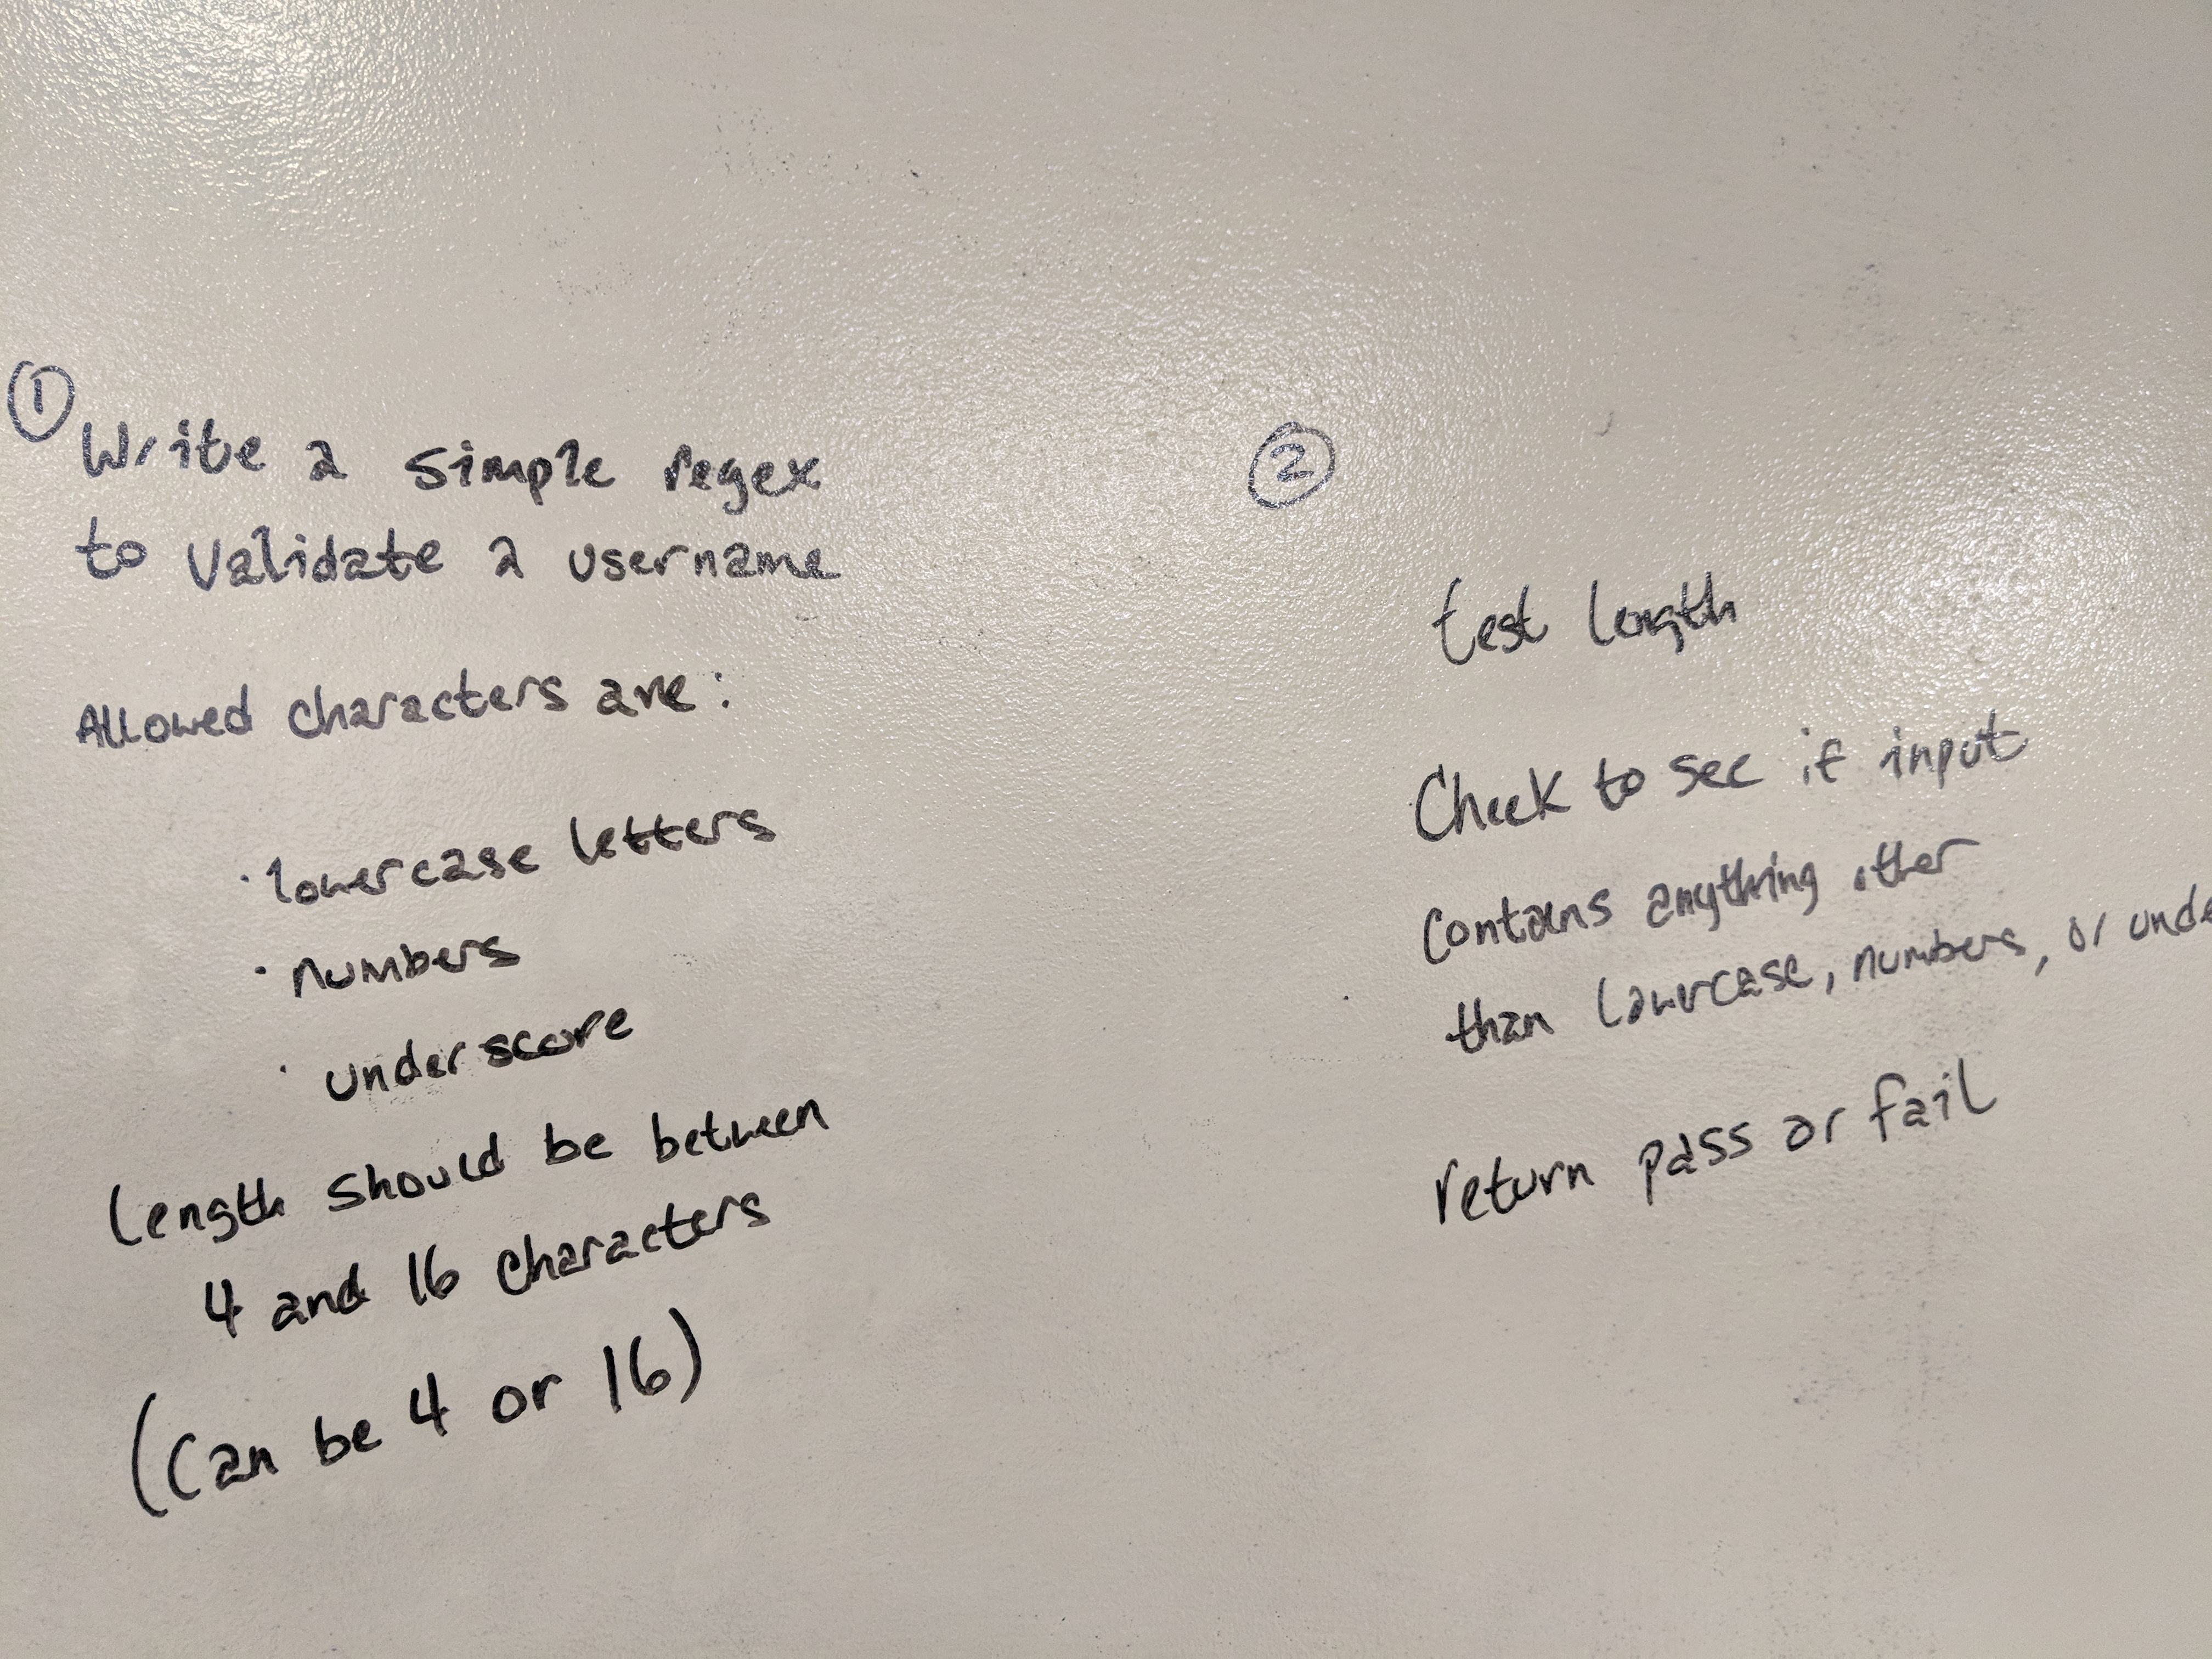 ①
Write a simple regex
to validate a username
Allowed characters are:
· lowercase letters
· numbers
· underscore
Length should be between
4 and 16 characters
(can be 4 or 16)
②
test length
Check to see if input
contains anything other
than lowercase, numbers, or unde
return pass or fail